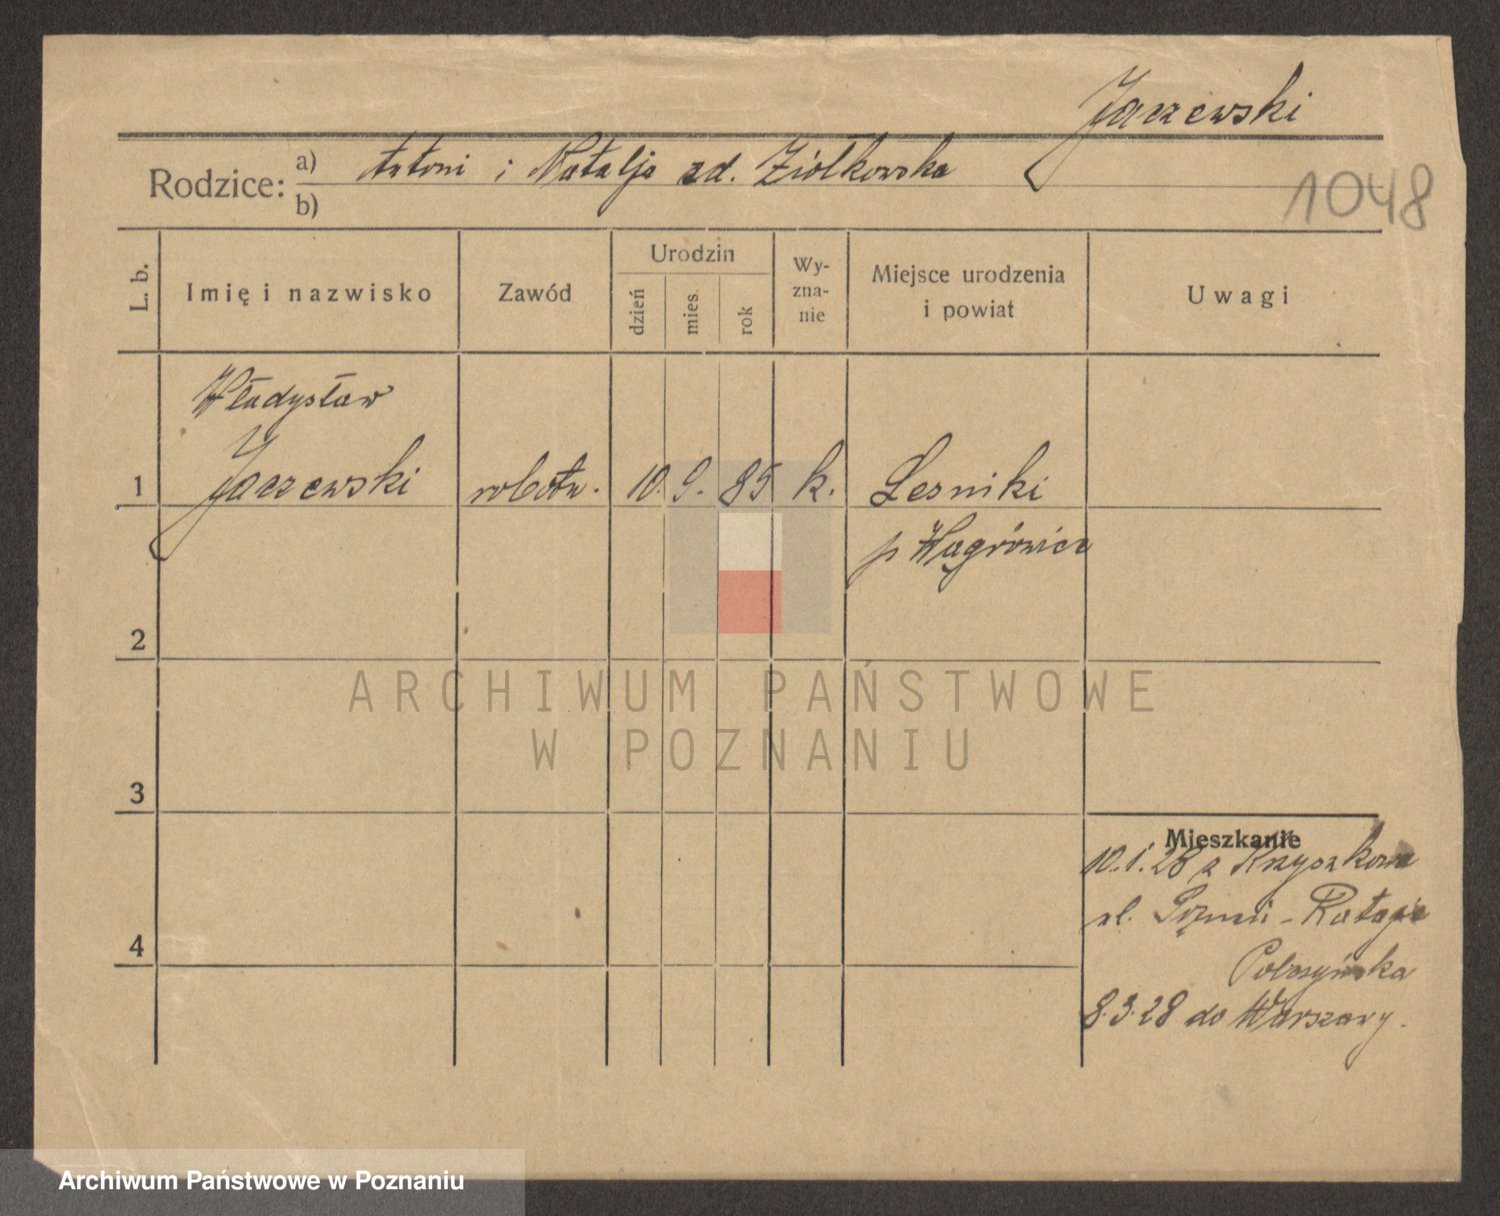 Jaczewski
Rodzice: a) Antoni i Natalja zd. Ziółkowska
b)
1048
L. b. Imię i nazwisko Zawód Urodzin dzień mies. rok Wy-zna-nie Miejsce urodzenia i powiat Uwagi
Władysław
1 Jaczewski robotn. 10. 9. 85 k. Lesniki
p Wągrówiec
2
ARCHIWUM PAŃSTWOWE
W POZNANIU
3
Mieszkanie
10.1.28 z Krzyszkowa
ul. - Rataje
8.3.28 do Warszawy.
4
Archiwum Państwowe w Poznaniu